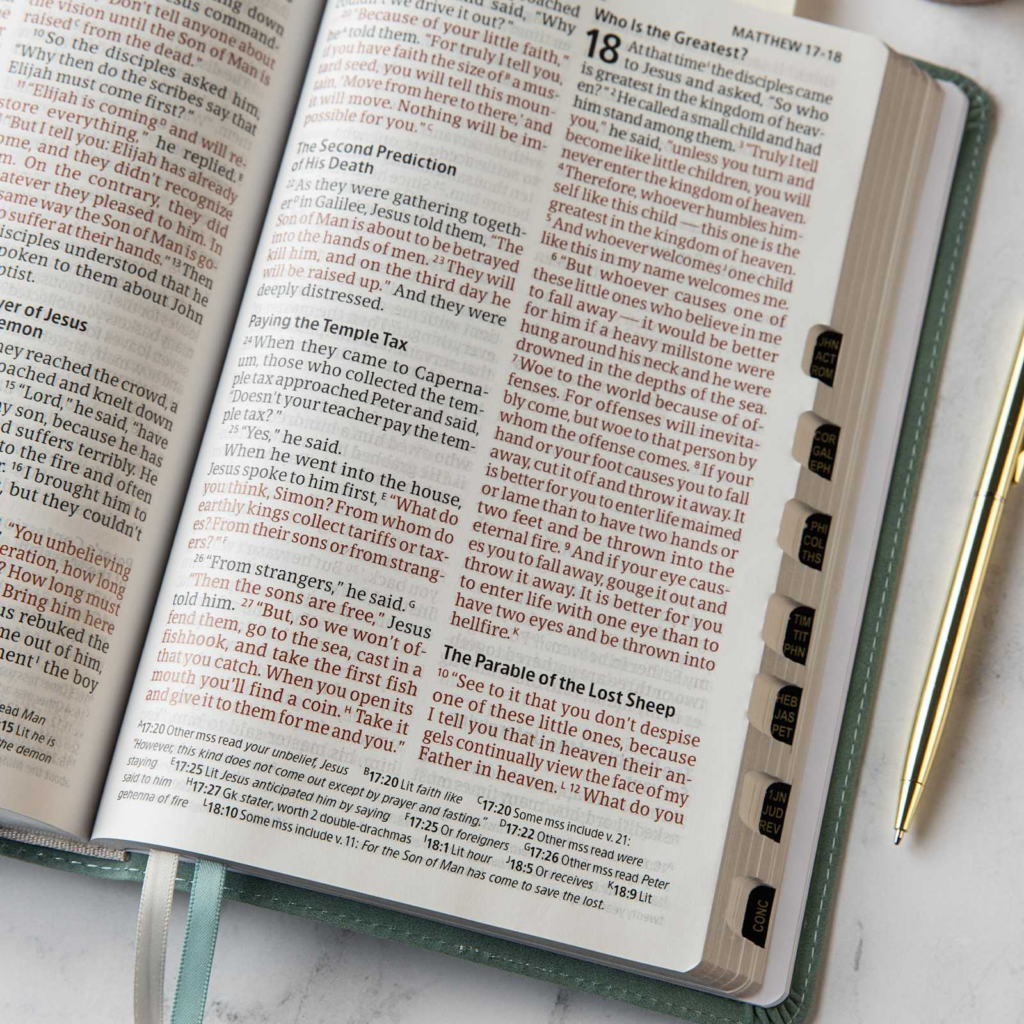 down
sus command-
"Don't tell anyone about
the vision until the Son of Man is
raised from the dead."
10 So the disciples asked him,
"Why then do the scribes say that
Elijah must come first?"
11 "Elijah is coming D and will re-
store everything," he replied. E
"But I tell you: Elijah has already
ome, and they didn't recognize
m. On the contrary, they did
atever they pleased to him. In
same way the Son of Man is go-
o suffer at their hands." 13 Then
isciples understood that he
poken to them about John
ptist.
er of Jesus
emon
hey reached the crowd, a
oached and knelt down
15 "Lord," he said, "have
y son, because he has
d suffers terribly. He
to the fire and often
r. 16 I brought him to
, but they couldn't
"You unbelieving
eration, how long
? How long must
Bring him here
us rebuked the
me out of him,
ment I the boy
ead Man
15 Lit he is
the demon
"Why
couldn't we drive it out?"
20 "Because of your little faith,"
he A told them. "For truly I tell you,
if you have faith the size of B a mus-
tard seed, you will tell this moun-
tain, 'Move from here to there,' and
it will move. Nothing will be im-
possible for you." C
The Second Prediction
of His Death
22 As they were gathering togeth-
er D in Galilee, Jesus told them, "The
Son of Man is about to be betrayed
into the hands of men. 23 They will
kill him, and on the third day he
will be raised up." And they were
deeply distressed.
Paying the Temple Tax
24 When they came to Caperna-
um, those who collected the tem-
ple tax approached Peter and said,
"Doesn't your teacher pay the tem-
ple tax?"
25 "Yes," he said.
When he went into the house,
Jesus spoke to him first, E "What do
you think, Simon? From whom do
earthly kings collect tariffs or tax-
es? From their sons or from strang-
ers?" F
26 "From strangers," he said. G
"Then the sons are free," Jesus
told him. 27 "But, so we won't of-
fend them, go to the sea, cast in a
fishhook, and take the first fish
that you catch. When you open its
mouth you'll find a coin. H Take it
and give it to them for me and you."
MATTHEW 17-18
Who Is the Greatest?
18 At that time I the disciples came
to Jesus and asked, "So who
is greatest in the kingdom of heav-
en?" 2 He called a small child and had
him stand among them. 3 "Truly I tell
you," he said, "unless you turn and
become like little children, you will
never enter the kingdom of heaven.
4 Therefore, whoever humbles him-
self like this child — this one is the
greatest in the kingdom of heaven.
5 And whoever welcomes J one child
like this in my name welcomes me.
6 "But whoever causes one of
these little ones who believe in me
to fall away — it would be better
for him if a heavy millstone were
hung around his neck and he were
drowned in the depths of the sea.
7 Woe to the world because of of-
fenses. For offenses will inevita-
bly come, but woe to that person by
whom the offense comes. 8 If your
hand or your foot causes you to fall
away, cut it off and throw it away. It
is better for you to enter life maimed
or lame than to have two hands or
two feet and be thrown into the
eternal fire. 9 And if your eye caus-
es you to fall away, gouge it out and
throw it away. It is better for you
to enter life with one eye than to
have two eyes and be thrown into
hellfire. K
The Parable of the Lost Sheep
10 "See to it that you don't despise
one of these little ones, because
I tell you that in heaven their an-
gels continually view the face of my
Father in heaven. L 12 What do you
A 17:20 Other mss read your unbelief, Jesus B 17:20 Lit faith like C 17:20 Some mss include v. 21:
"However, this kind does not come out except by prayer and fasting." D 17:22 Other mss read were
staying E 17:25 Lit Jesus anticipated him by saying F 17:25 Or foreigners G 17:26 Other mss read Peter
said to him H 17:27 Gk stater, worth 2 double-drachmas I 18:1 Lit hour J 18:5 Or receives K 18:9 Lit
gehenna of fire L 18:10 Some mss include v. 11: For the Son of Man has come to save the lost.
JHN
ACT
ROM
COR
GAL
EPH
PHI
COL
THS
TIM
TIT
PHN
HEB
JAS
PET
1JN
JUD
REV
CONC